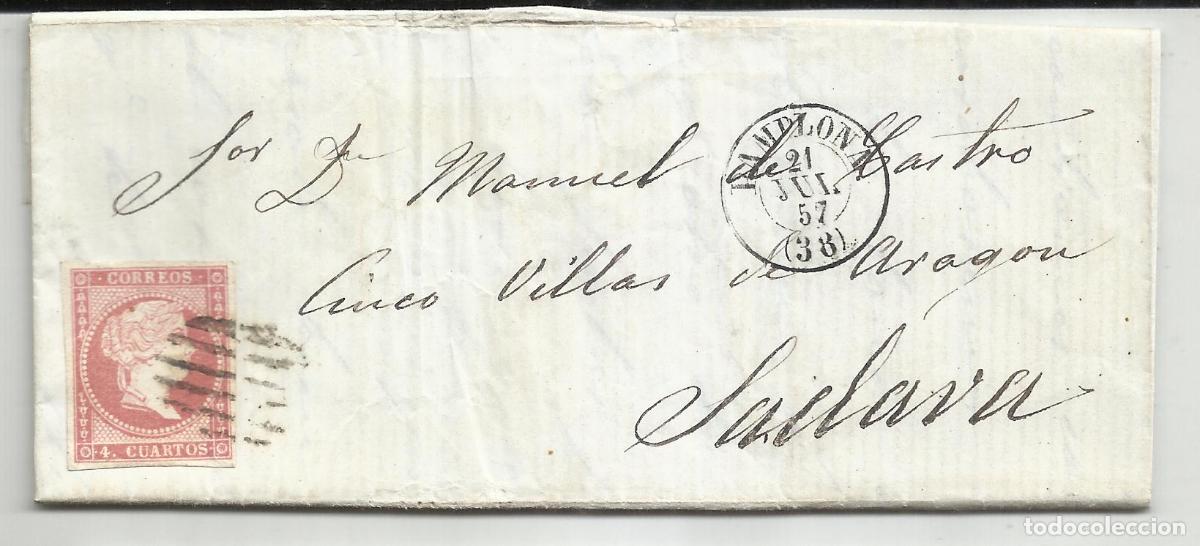 Sor Dn Manuel de Castro
Cinco Villas de Aragon
Sadava
PAMPLONA
21
JUL.
57
(38)
CORREOS
4. CUARTOS
todocoleccion